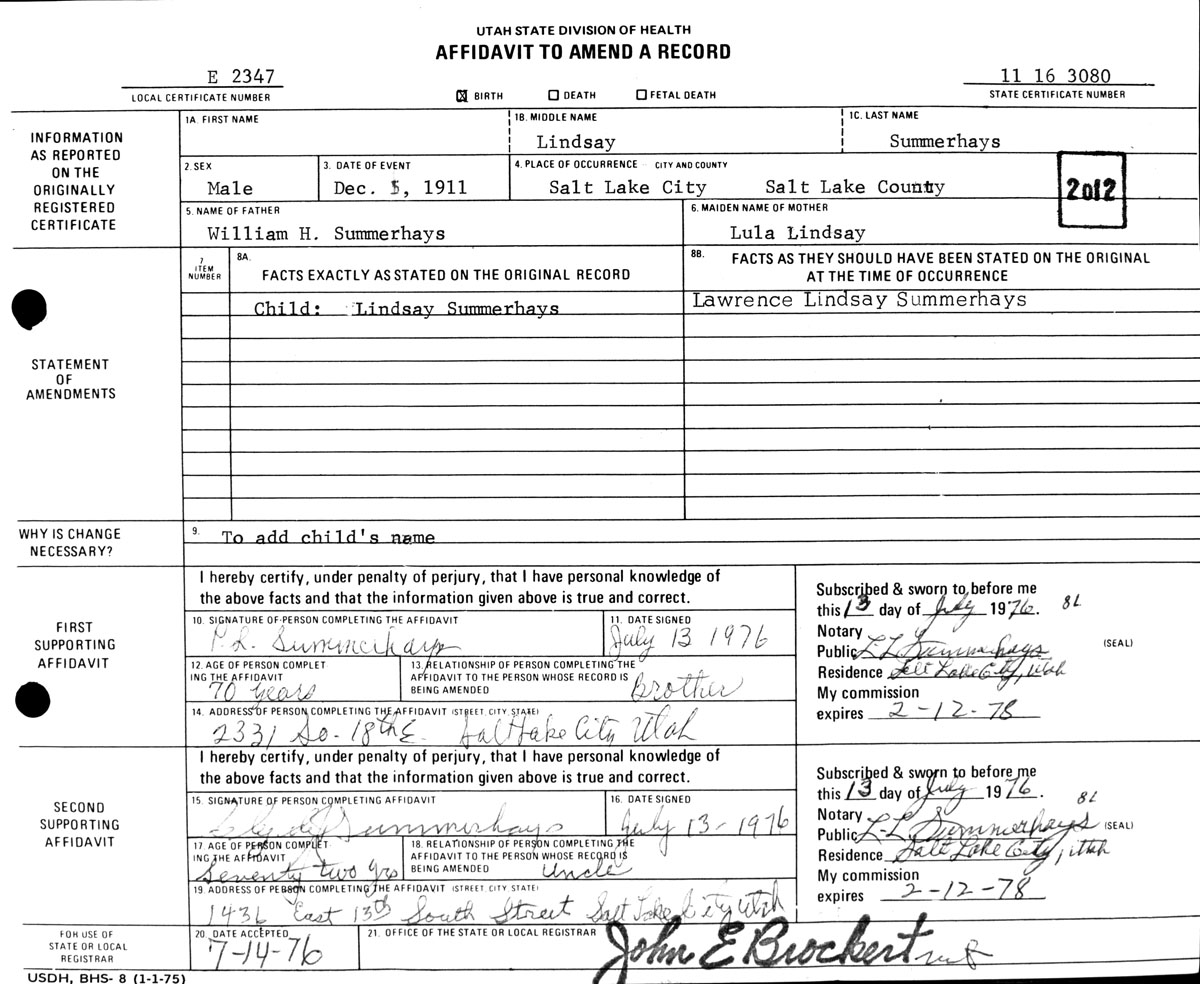 UTAH STATE DIVISION OF HEALTH
AFFIDAVIT TO AMEND A RECORD
E 2347
LOCAL CERTIFICATE NUMBER
☒ BIRTH ☐ DEATH ☐ FETAL DEATH
11 16 3080
STATE CERTIFICATE NUMBER
INFORMATION
AS REPORTED
ON THE
ORIGINALLY
REGISTERED
CERTIFICATE
1A. FIRST NAME
1B. MIDDLE NAME
Lindsay
1C. LAST NAME
Summerhays
2. SEX
Male
3. DATE OF EVENT
Dec. 5, 1911
4. PLACE OF OCCURRENCE - CITY AND COUNTY
Salt Lake City Salt Lake County
2 of 2
5. NAME OF FATHER
William H. Summerhays
6. MAIDEN NAME OF MOTHER
Lula Lindsay
STATEMENT
OF
AMENDMENTS
7
ITEM
NUMBER
8A.
FACTS EXACTLY AS STATED ON THE ORIGINAL RECORD
8B. FACTS AS THEY SHOULD HAVE BEEN STATED ON THE ORIGINAL
AT THE TIME OF OCCURRENCE
Child: Lindsay Summerhays
Lawrence Lindsay Summerhays
WHY IS CHANGE
NECESSARY?
9. To add child's name
FIRST
SUPPORTING
AFFIDAVIT
I hereby certify, under penalty of perjury, that I have personal knowledge of
the above facts and that the information given above is true and correct.
10. SIGNATURE OF PERSON COMPLETING THE AFFIDAVIT
P. L. Summerhays
11. DATE SIGNED
July 13 1976
12. AGE OF PERSON COMPLET
ING THE AFFIDAVIT
70 years
13. RELATIONSHIP OF PERSON COMPLETING THE
AFFIDAVIT TO THE PERSON WHOSE RECORD IS
BEING AMENDED
Brother
14. ADDRESS OF PERSON COMPLETING THE AFFIDAVIT (STREET, CITY, STATE)
2331 So. 18th E. Salt Lake City Utah
Subscribed & sworn to before me
this 13 day of July 1976. 8L
Notary
Public L L Summerhays (SEAL)
Residence Salt Lake City, Utah
My commission
expires 2-12-78
SECOND
SUPPORTING
AFFIDAVIT
I hereby certify, under penalty of perjury, that I have personal knowledge of
the above facts and that the information given above is true and correct.
15. SIGNATURE OF PERSON COMPLETING AFFIDAVIT
Summerhays
16. DATE SIGNED
July 13-1976
17. AGE OF PERSON COMPLET
ING THE AFFIDAVIT
Seventy two yrs
18. RELATIONSHIP OF PERSON COMPLETING THE
AFFIDAVIT TO THE PERSON WHOSE RECORD IS
BEING AMENDED
Uncle
19. ADDRESS OF PERSON COMPLETING THE AFFIDAVIT (STREET, CITY, STATE)
1436 East 13th South Street Salt Lake City Utah
Subscribed & sworn to before me
this 13 day of July 1976. 8L
Notary
Public L-L Summerhays (SEAL)
Residence Salt Lake City, Utah
My commission
expires 2-12-78
FOR USE OF
STATE OR LOCAL
REGISTRAR
20. DATE ACCEPTED
7-14-76
21. OFFICE OF THE STATE OR LOCAL REGISTRAR
John E Brockert
USDH, BHS- 8 (1-1-75)